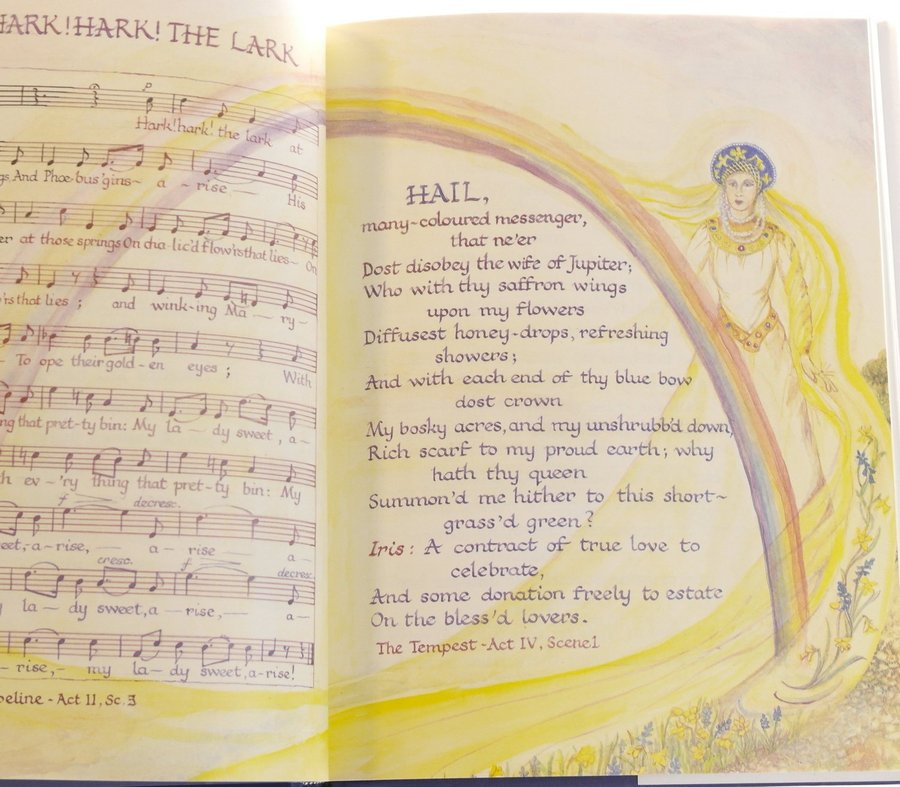 HARK! HARK! THE LARK
p
Hark! hark! the lark at
And Phoe-bus 'gins a-rise His
at those springs On cha-lic'd flow'rs that lies- On
that lies; and wink-ing Ma-ry-
To ope their gold-en eyes; With
that pret-ty bin: My la-dy sweet, a-
ev-'ry thing that pret-ty bin: My
f decresc.
a-rise, a-rise a-
cresc. f decresc.
la-dy sweet, a-rise, a-
rise,- my la-dy sweet, a-rise!
Act II, Sc. 3
HAIL,
many-coloured messenger,
that ne'er
Dost disobey the wife of Jupiter;
Who with thy saffron wings
upon my flowers
Diffusest honey-drops, refreshing
showers;
And with each end of thy blue bow
dost crown
My bosky acres, and my unshrubb'd down,
Rich scarf to my proud earth; why
hath thy queen
Summon'd me hither to this short-
grass'd green?
Iris: A contract of true love to
celebrate,
And some donation freely to estate
On the bless'd lovers.
The Tempest - Act IV, Scene 1